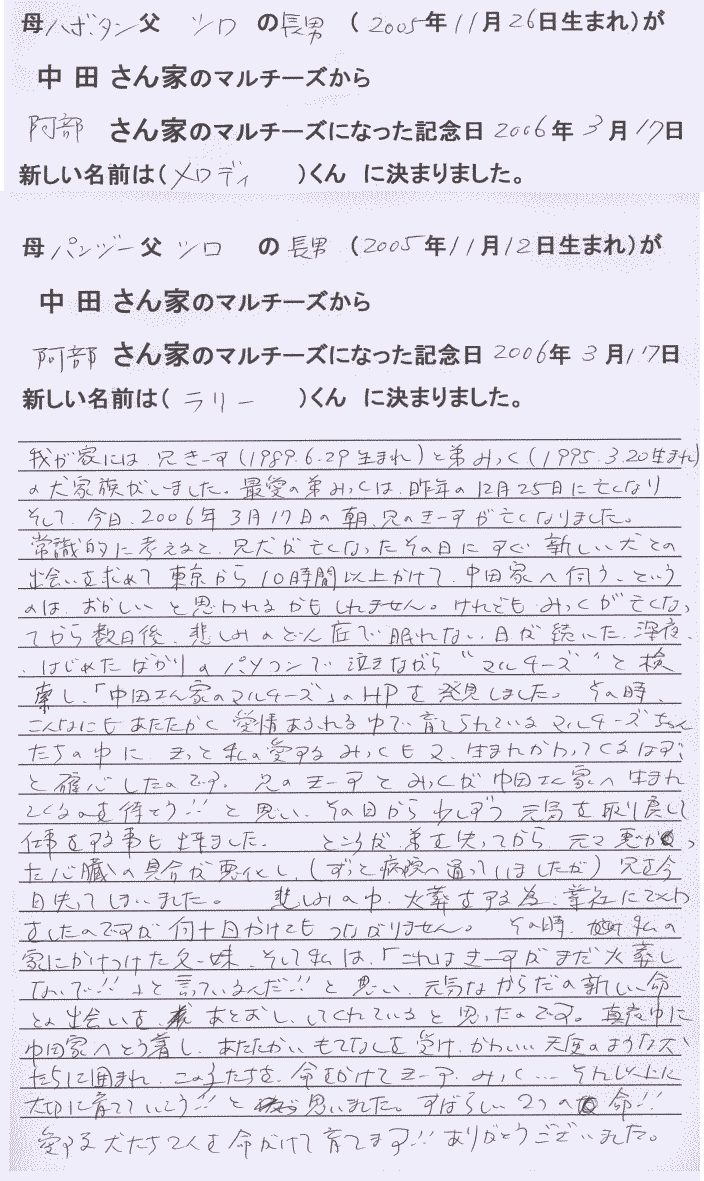 母ハボタン父 シロ の長男 (2005年11月26日生まれ)が
中田さん家のマルチーズから
阿部 さん家のマルチーズになった記念日2006年3月17日
新しい名前は(メロディ )くん に決まりました。
母パンジー父 シロ の長男 (2005年11月12日生まれ)が
中田さん家のマルチーズから
阿部 さん家のマルチーズになった記念日2006年3月17日
新しい名前は(ラリー )くん に決まりました。
我が家には、兄きーす(1989.6.29生まれ)と弟みっく(1995.3.20生まれ)
の犬家族がいました。最愛の弟みっくは、昨年の12月25日に亡くなり
そして、今日、2006年3月17日の朝、兄のきーすが亡くなりました。
常識的に考えると、兄犬が亡くなったその日にすぐ新しい犬との
出会いを求めて東京から10時間以上かけて、中田家へ伺うという
のは、おかしいと思われるかもしれません。けれどもみっくが亡くなっ
てから数日後、悲しみのどん底で眠れない日が続いた、深夜、
はじめたばかりのパソコンで泣きながら“マルチーズ”と検
索し、「中田さん家のマルチーズ」のHPを発見しました。その時、
こんなにもあたたかく愛情あふれる中で育てられているマルチーズちゃん
たちの中に、きっと私の愛するみっくも又、生まれかわってくるはず
と確心したのです。兄のきーすとみっくが中田さん家へ生まれ
てくるのを待とう!!と思い、その日から少しずつ元気を取り戻して
仕事をする事も出来ました。 ところが弟を失ってから、元々悪かっ
た心臓の具合が悪化し、(ずっと病院へ通っていましたが)兄を今
日失ってしまいました。 悲しみの中、火葬をする為、業社にTELし
ましたのですが何十回かけてもつながりません。その時、私の
家にかけつけた父・妹、そして私は、「これはきーすがまだ火葬し
ないで!!」と言っているんだ!!と思い、元気なからだの新しい命
との出会いを、あとおししてくれていると思ったのです。真夜中に
中田家へとう着し、あたたかいもてなしを受け、かわいい天使のような犬
たちに囲まれ、この子たちを、命をかけてきーす、みっく…それ以上に
大切に育てていこう!!と思いました。すばらしい2つの命!!
愛する犬たち2人を命がけで育てます!!ありがとうございました。